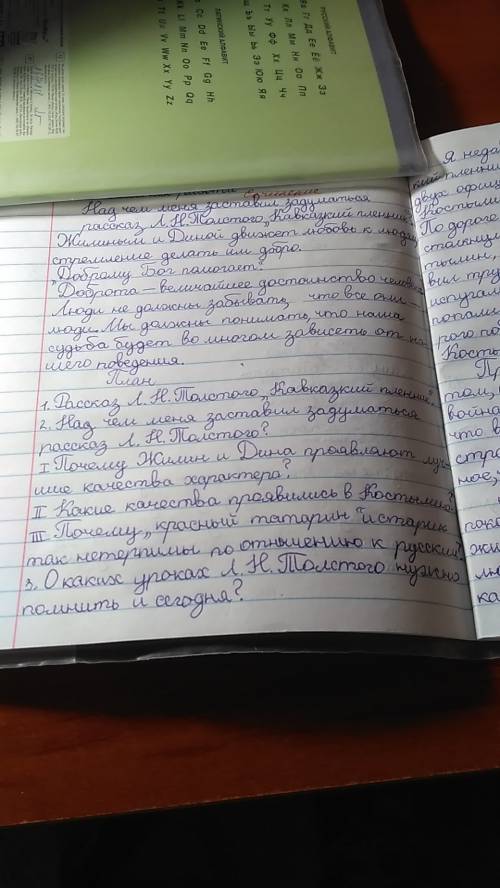 РУССКИЙ АЛФАВИТ
Вв Гг Дд Ее Ёё Жж Зз
Кк Лл Мм Нн Оо Пп
Тт Уу Фф Хх Цц Чч
Щ Ъъ Ыы Ьь Ээ Юю Яя
ЛАТИНСКИЙ АЛФАВИТ
Cc Dd Ee Ff Gg Hh
Kk Ll Mm Nn Oo Pp Qq
Tt Uu Vv Ww Xx Yy Zz
Сочинение
Над чем меня заставил задуматься
рассказ Л.Н.Толстого „Кавказкий пленник
Жилиным и Диной движет любовь к людям,
стремление делать им добро.
„Доброму Бог помогает".
Доброта – величайшее достоинство человека
Люди не должны забывать, что все они –
люди. Мы должны понимать, что наша
судьба будет во многом зависеть от на-
шего поведения.
План
1. Рассказ Л.Н.Толстого „Кавказкий пленник".
2. Над чем меня заставил задуматься
рассказ Л.Н.Толстого?
I Почему Жилин и Дина проявляют луч-
шие качества характера?
II Какие качества проявились в Костылине?
III Почему „красный татарин" и старик
так нетерпимы по отнышению к русским?
3. О каких уроках Л.Н.Толстого нужно
помнить и сегодня?
Я неда
кий пленни
двух офиц
Костыли
По дороге
столкну
тылин,
вил тру
испугал
попали
рого по
Кость
Пр
том,
войно
что в
стра
ное,
пока
жи
лю
ка